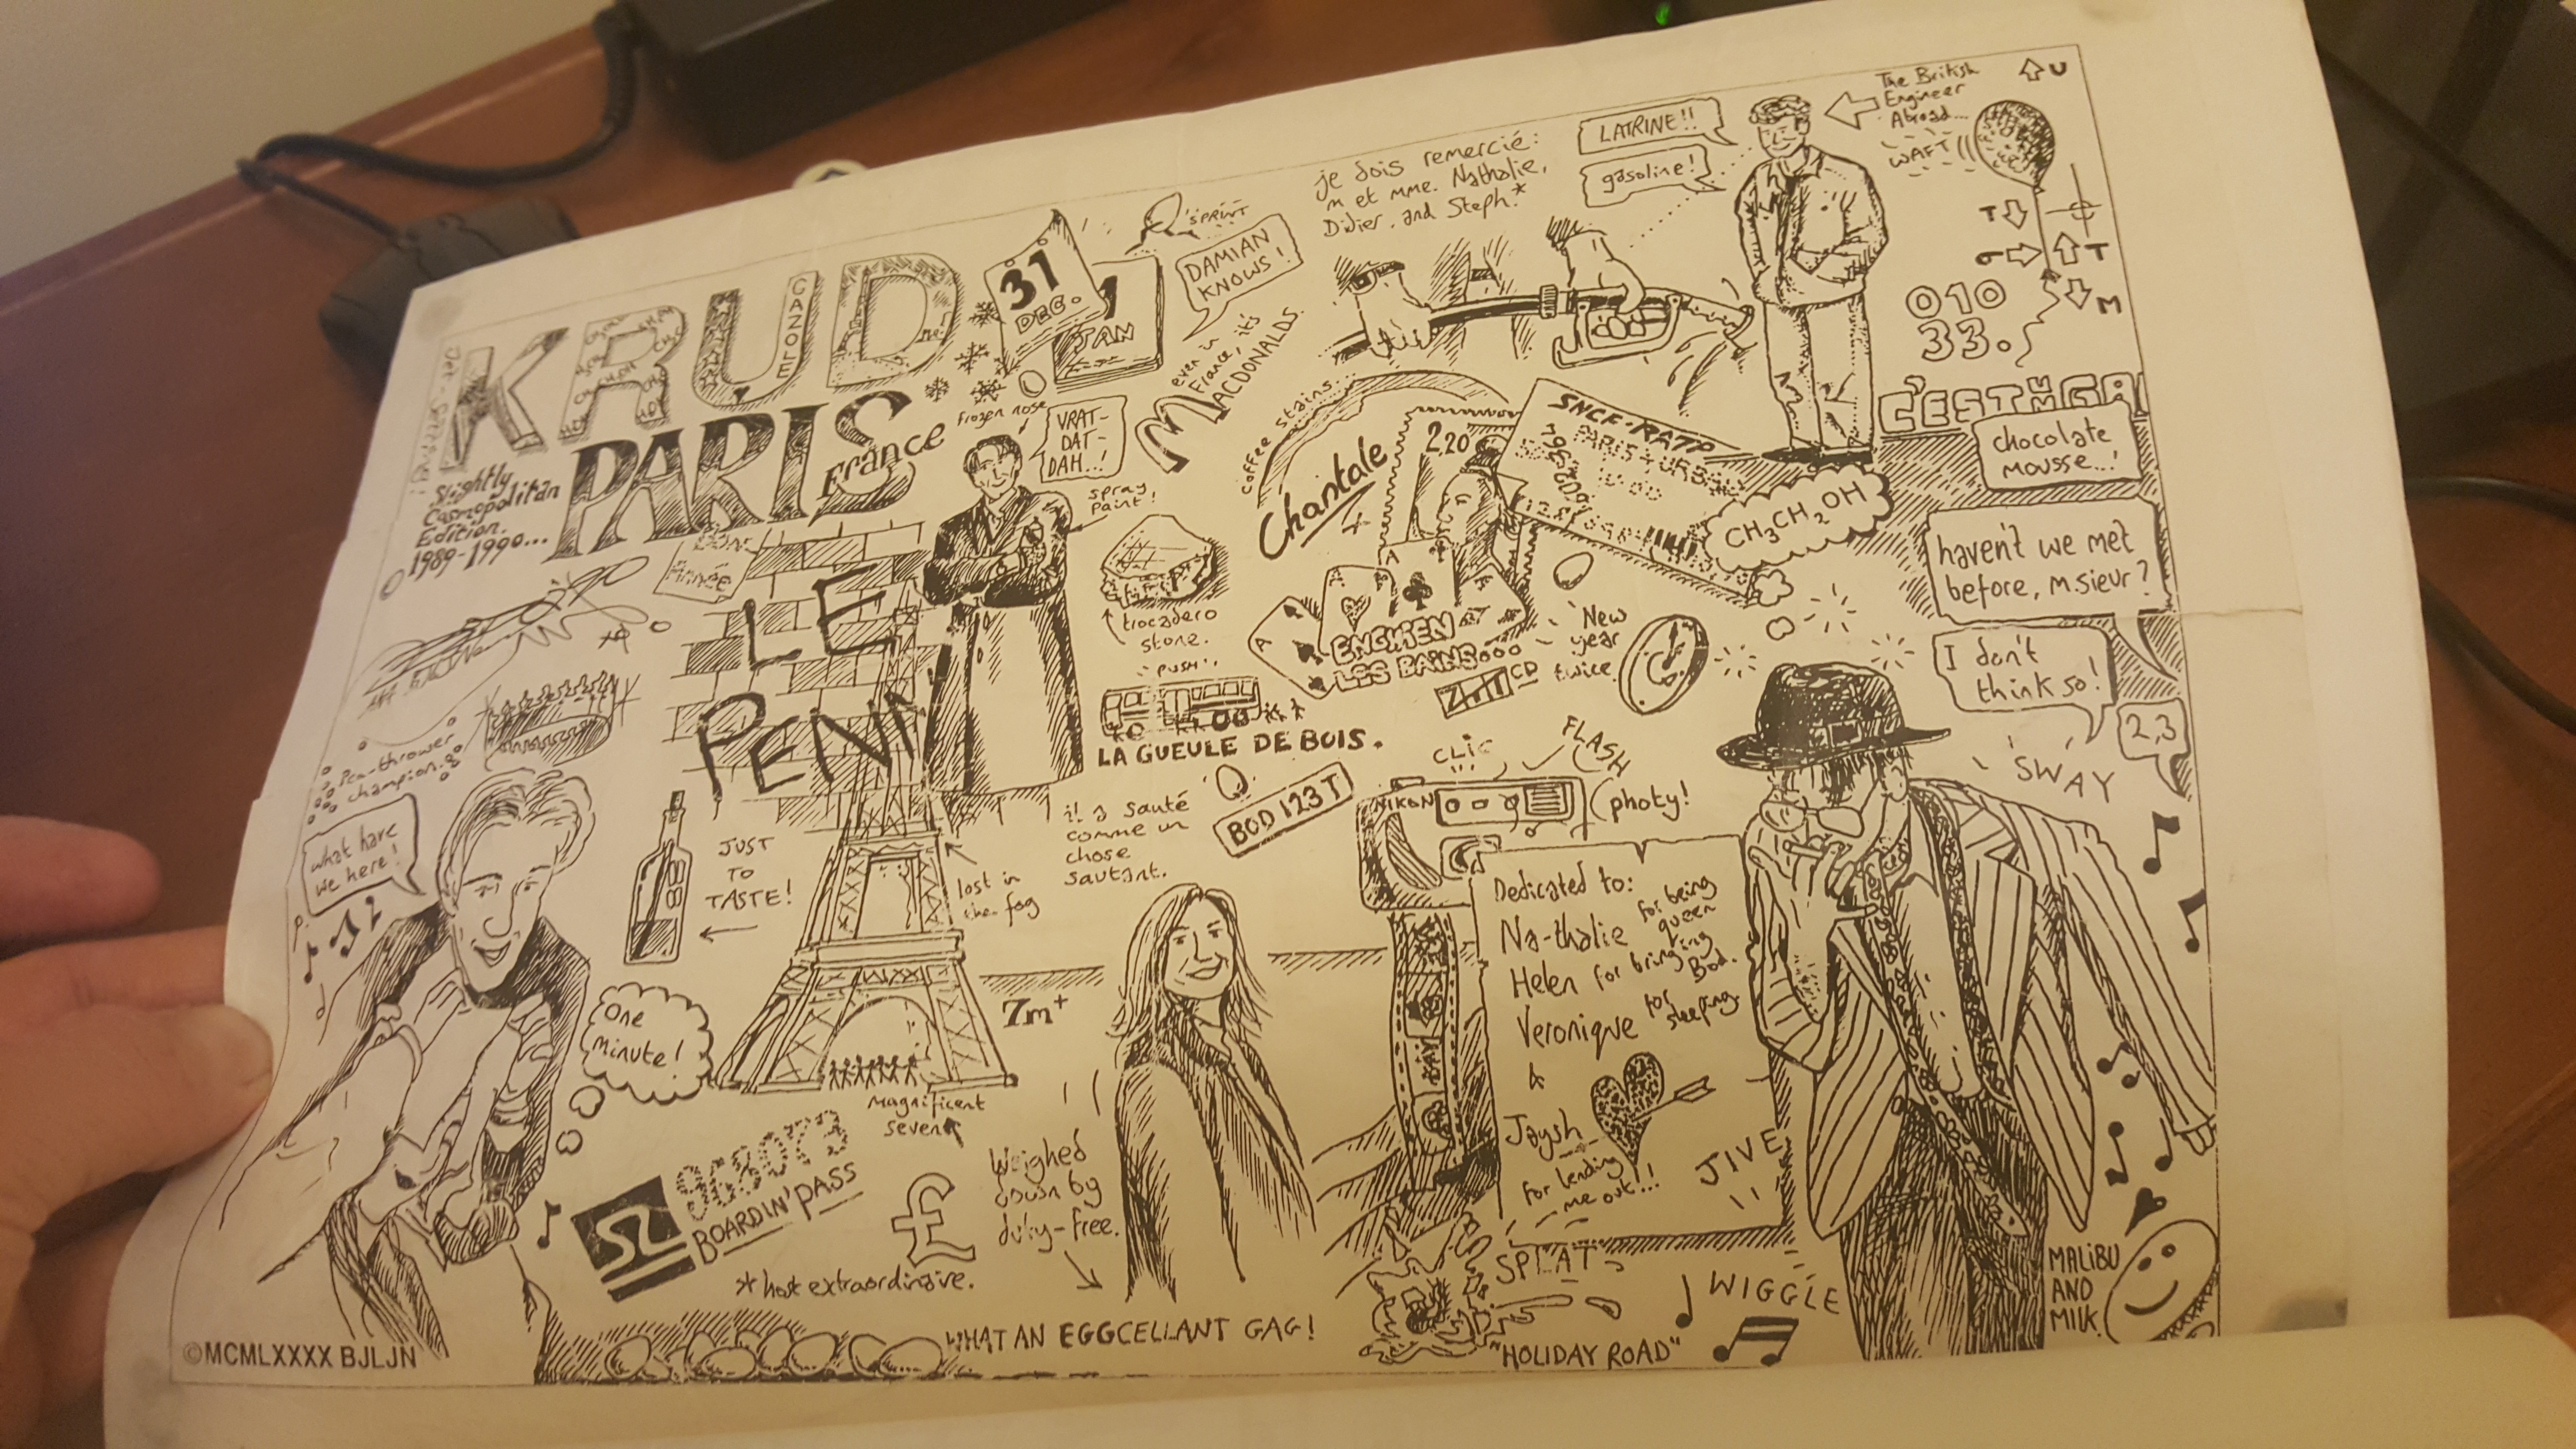 KRUD
GAZOLE
PARIS
France
Slightly
Cosmopolitan
Edition.
1989-1990...
31
DEC.
1
JAN
SPRINT
DAMIAN
KNOWS!
even in
France, it's
MACDONALDS.
je dois remercié:
m et mme. Nathalie,
Didier, and Steph.*
LATRINE!!
gasoline!
The British
Engineer
Abroad...
U
WAFT
T
T
M
010
33.
C'EST
chocolate
mousse...!
frozen nose
VRAT-
DAT-
DAH...!
spray
paint!
coffee stains
Chantale
2,20
SNCF-RATP
PARIS
CH3CH2OH
haven't we met
before, m.sieur?
I don't
think so!
2,3
SWAY
Année
LE
PEN
trocadero
stone.
"PUSH"
LA GUEULE DE BOIS.
A
A
A
ENGHIEN
LES BAINS
CD
New
year
twice
Pea-thrower
champion.
what have
we here!
JUST
TO
TASTE!
lost in
the fog
il a sauté
comme un
chose
sautant.
BOD 123 T
CLIC
FLASH
NIKON
photy!
Dedicated to:
Na-thalie for being
queen
Helen for bringing
Bod.
Veronique for
sleeping.
&
Jaysh
for lending
me out!...!
One
minute!
7m+
Magnificent
seven
968073
BOARDIN' PASS
£
Weighed
down by
duty-free.
*host extraordinaire.
JIVE
SPLAT
WIGGLE
"HOLIDAY ROAD"
MALIBU
AND
MILK.
WHAT AN EGGCELLANT GAG!
©MCMLXXXX BJLJN